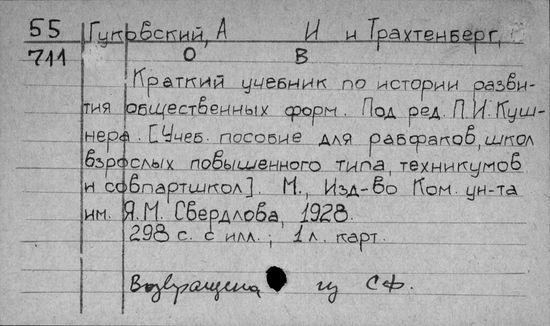 55 Гуковский, А И и Трахтенберг,
711 О В
Краткий учебник по истории разви-
тия общественных форм. Под ред. П.И. Куш-
нера. [Учеб. пособие для рабфаков, школ
взрослых повышенного типа, техникумов
и совпартшкол]. М., Изд-во Ком. ун-та
им. Я.М. Свердлова, 1928.
298 с. с илл.; 1 л. карт.
Возвращена из СФ.